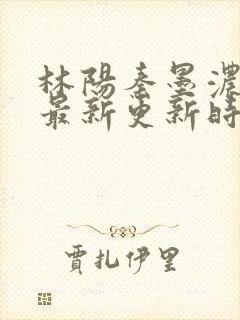 林陽秦墨濃
最新更新時
賈扎伊里